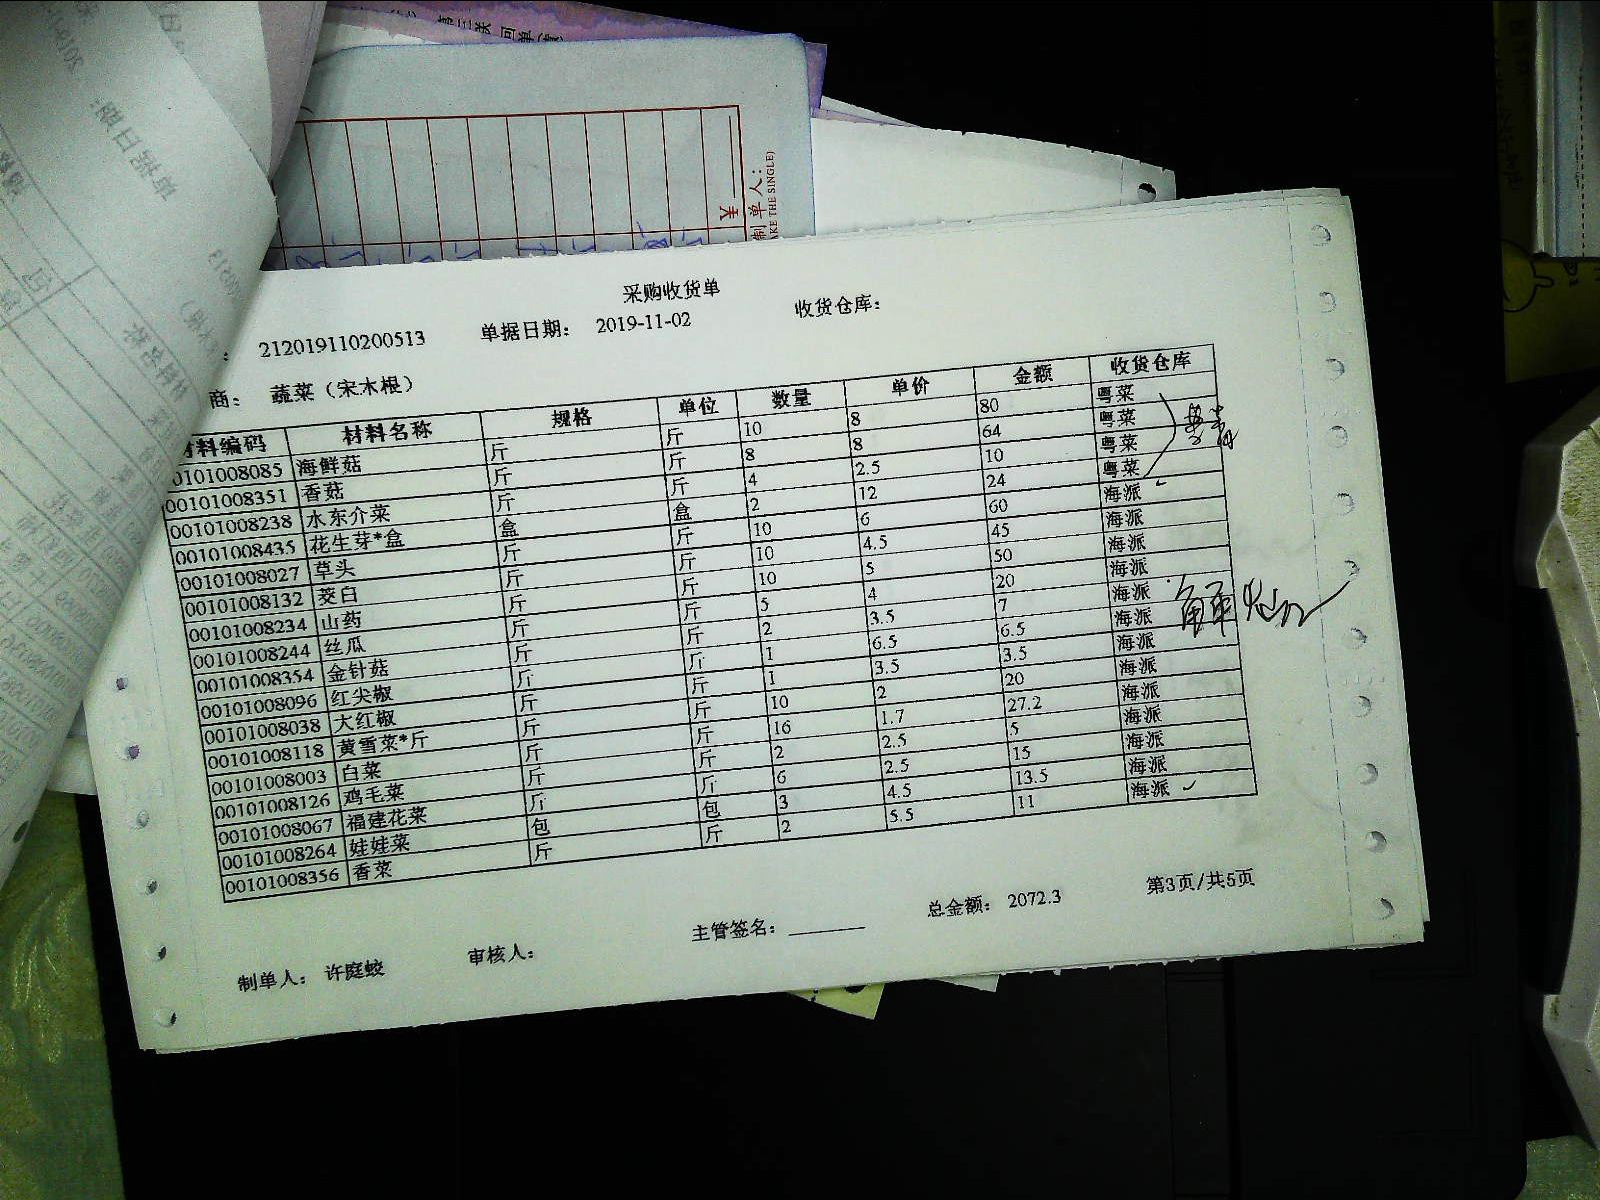 采购收货单
212019110200513 单据日期: 2019-11-02 收货仓库:
商: 蔬菜（宋木根）
材料编码 材料名称 规格 单位 数量 单价 金额 收货仓库
0101008085 海鲜菇 斤 斤 10 8 80 粤菜
00101008351 香菇 斤 斤 8 8 64 粤菜
00101008238 水东介菜 斤 斤 4 2.5 10 粤菜
00101008435 花生芽*盒 盒 盒 2 12 24 粤菜
00101008027 草头 斤 斤 10 6 60 海派
00101008132 茭白 斤 斤 10 4.5 45 海派
00101008234 山药 斤 斤 10 5 50 海派
00101008244 丝瓜 斤 斤 5 4 20 海派
00101008354 金针菇 斤 斤 2 3.5 7 海派
00101008096 红尖椒 斤 斤 1 6.5 6.5 海派
00101008038 大红椒 斤 斤 1 3.5 3.5 海派
00101008118 黄雪菜*斤 斤 斤 10 2 20 海派
00101008003 白菜 斤 斤 16 1.7 27.2 海派
00101008126 鸡毛菜 斤 斤 2 2.5 5 海派
00101008067 福建花菜 斤 斤 6 2.5 15 海派
00101008264 娃娃菜 包 包 3 4.5 13.5 海派
00101008356 香菜 斤 斤 2 5.5 11 海派
总金额: 2072.3 第3页/共5页
制单人: 许庭蛟 审核人: 主管签名:
制单人:
KE THE SINGLE)
¥
单据日期: